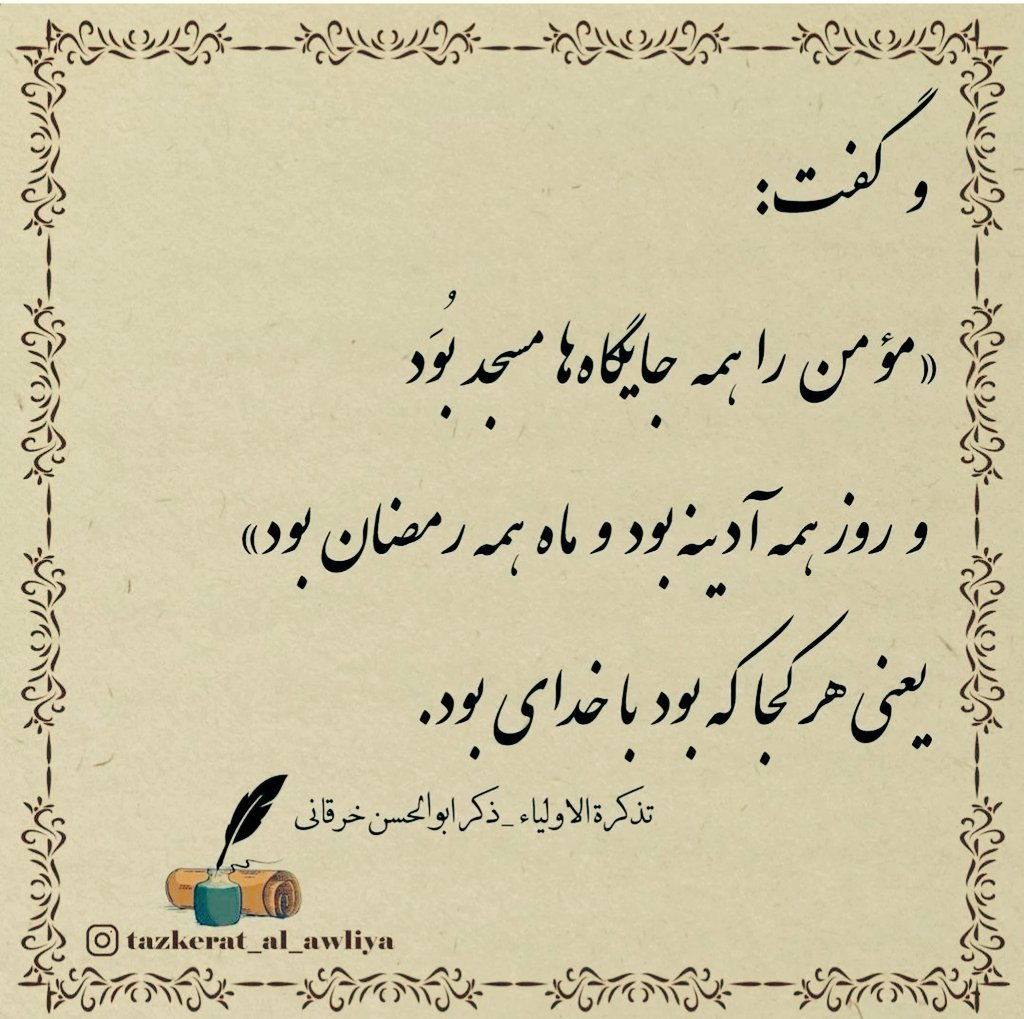 و گفت:
«مؤمن را همه جایگاه‌ها مسجد بُوَد
و روز همه آدینه بود و ماه همه رمضان بود»
یعنی هر کجا که بود با خدای بود.
تذکرة الاولیاء _ ذکر ابوالحسن خرقانی
tazkerat_al_awliya